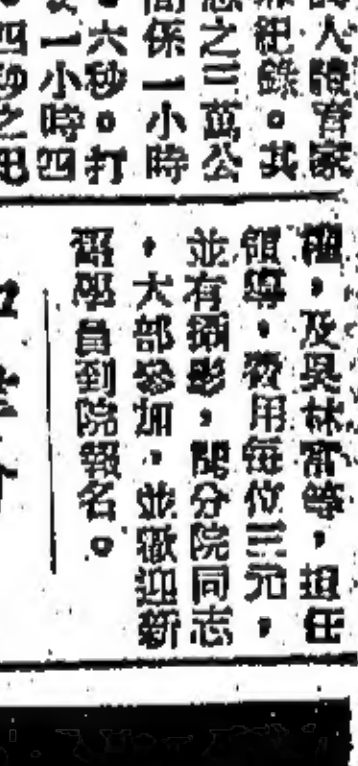 人體育家
紀錄。其
之三萬公
係一小時
六秒。打
一小時四
四秒之
權,及吳林富等,担任
領導,費用每位三元,
並有攝影,聞分院同志
,大部參加,並歡迎新
舊學員到院報名。